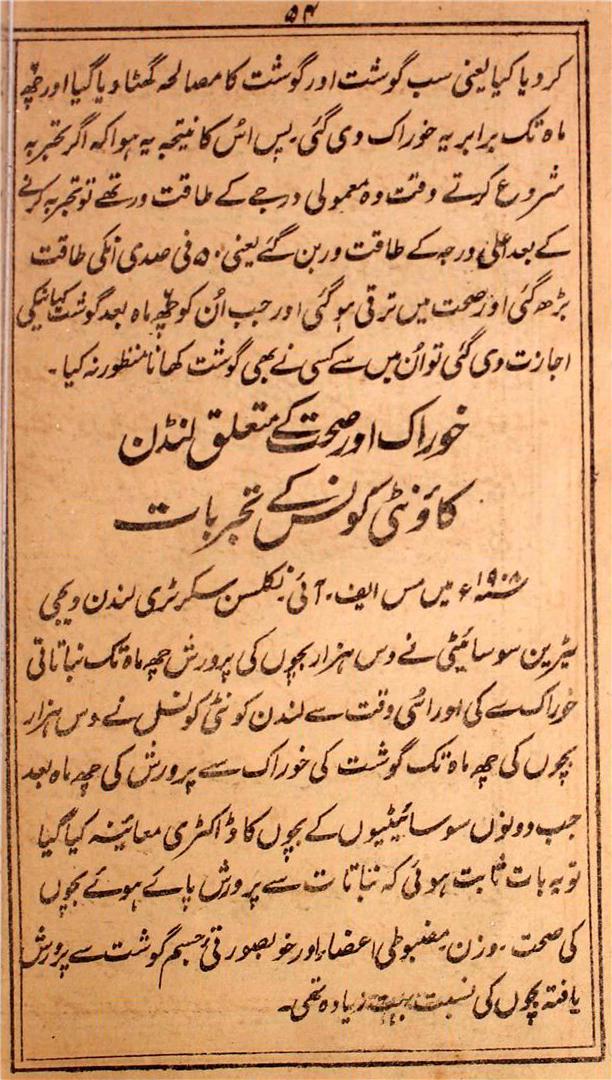 ۵۴
کر دیا گیا یعنی سب گوشت اور گوشت کا مصالحہ گھٹا دیا گیا اور چھ
ماہ تک برابر یہ خوراک دی گئی۔ پس اس کا نتیجہ یہ ہوا کہ اگر تجربہ
شروع کرتے وقت وہ معمولی درجے کے طاقت ور تھے تو تجربہ کرنے
کے بعد اعلیٰ درجہ کے طاقت ور بن گئے یعنی ۵۰ فی صدی انکی طاقت
بڑھ گئی اور صحت میں ترقی ہو گئی اور جب اُن کو چھ ماہ بعد گوشت کھانیکی
اجازت دی گئی تو اُن میں سے کسی نے بھی گوشت کھانا منظور نہ کیا۔
خوراک اور صحت کے متعلق لنڈن
کاؤنٹی کونسل کے تجربات
۱۹۰۸ء میں مس ایف۔ آئی نکلسن سکرٹری لندن ویجی
ٹیرین سوسائیٹی نے دس ہزار بچوں کی پرورش چھ ماہ تک نباتاتی
خوراک سے کی اور اُسی وقت سے لندن کونٹی کونسل نے دس ہزار
بچوں کی چھ ماہ تک گوشت کی خوراک سے پرورش کی چھ ماہ بعد
جب دونوں سوسائیٹیوں کے بچوں کا ڈاکٹری معائینہ کیا گیا
تو یہ بات ثابت ہوئی کہ نباتات سے پرورش پائے ہوئے بچوں
کی صحت۔ وزن۔ مضبوطی اعضاء اور خوبصورتی جسم گوشت سے پرورش
یافتہ بچوں کی نسبت بہت زیادہ تھی۔